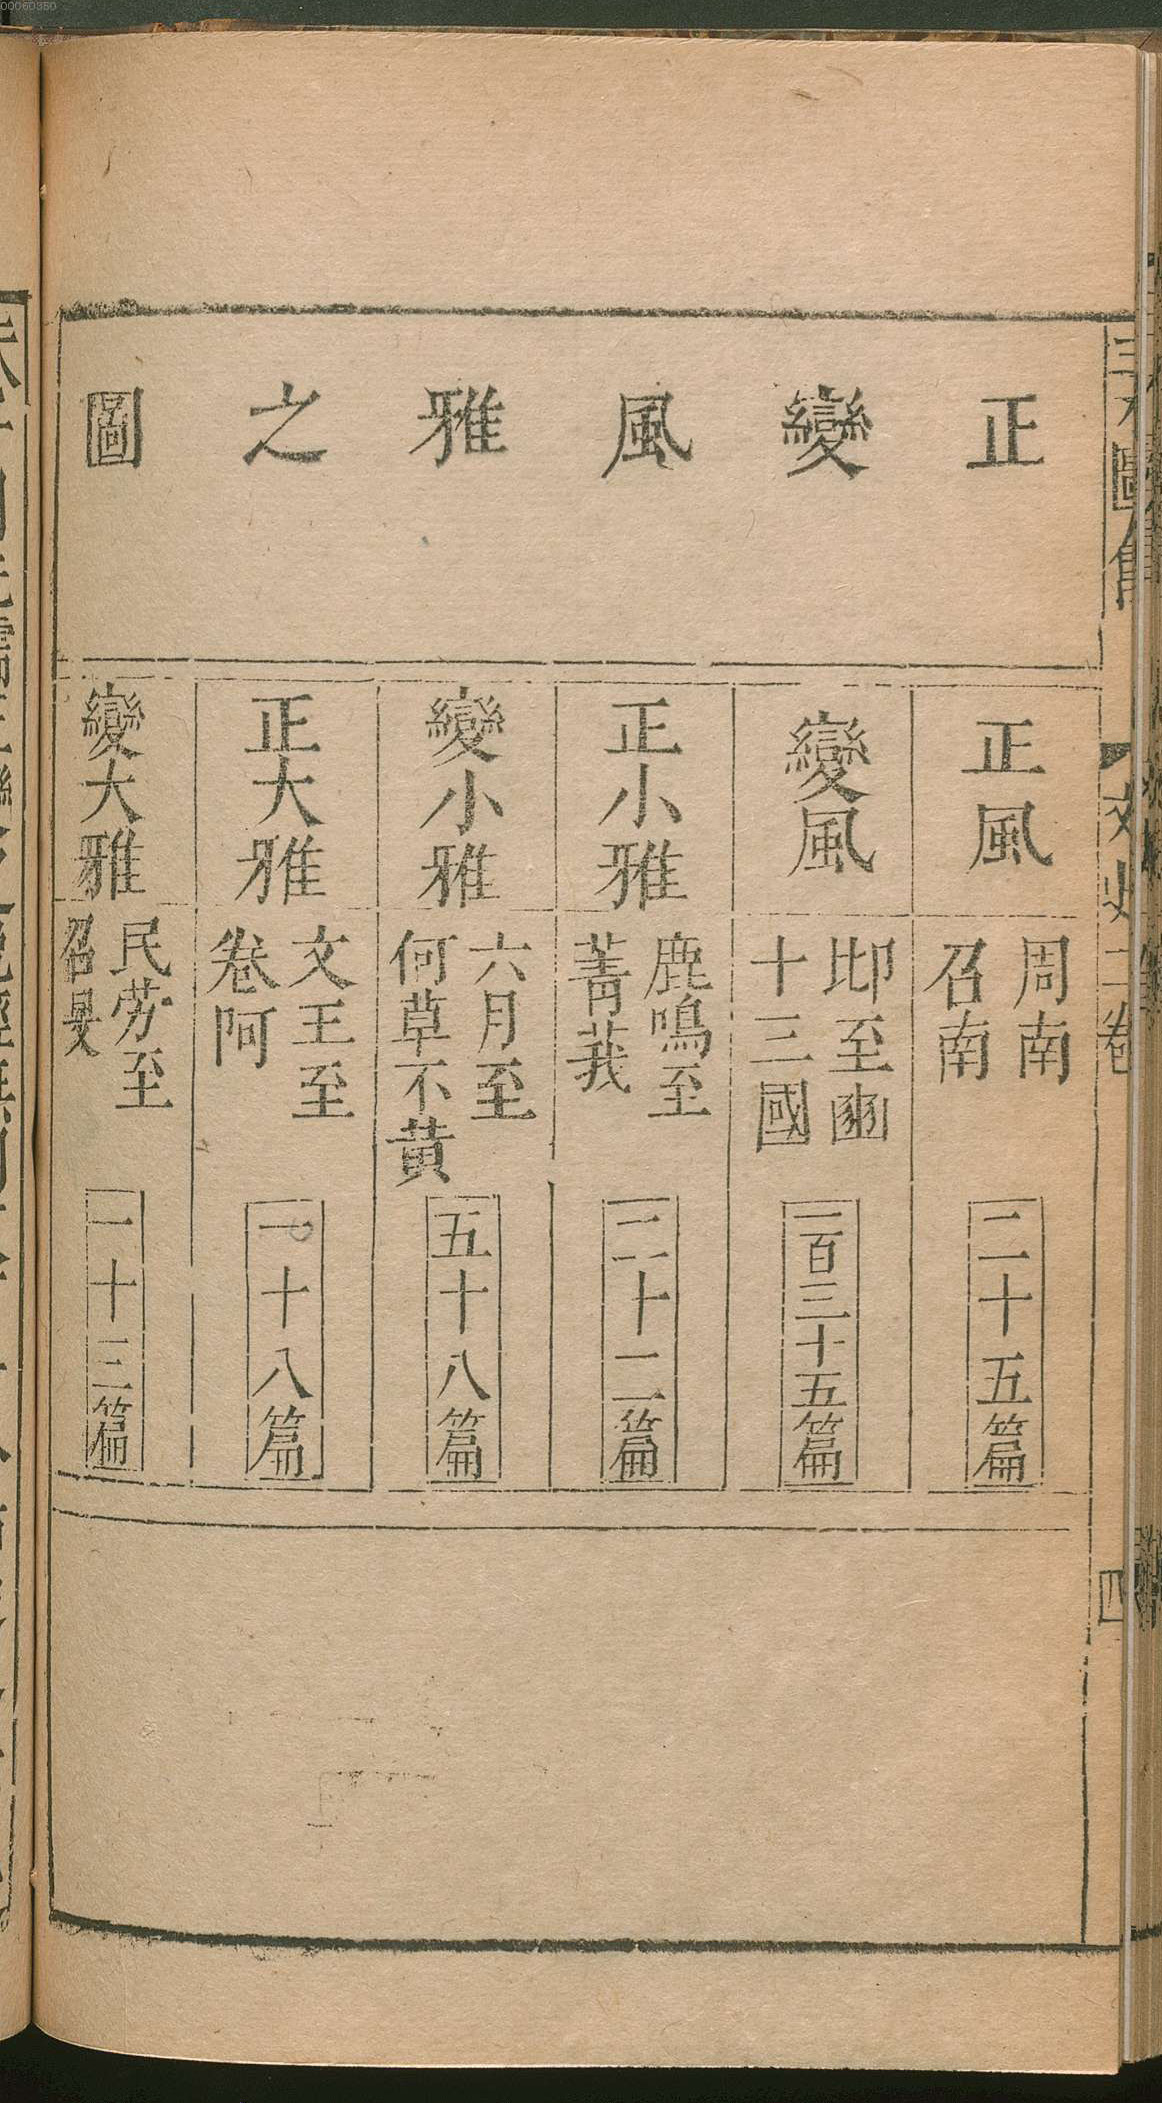 00060350
正變風雅之圖
正風
周南
召南
二十五篇
變風
邶至豳
十三國
一百三十五篇
正小雅
鹿鳴至
菁莪
二十二篇
變小雅
六月至
何草不黃
五十八篇
正大雅
文王至
卷阿
一十八篇
變大雅
民劳至
召旻
一十三篇
文史二卷
四